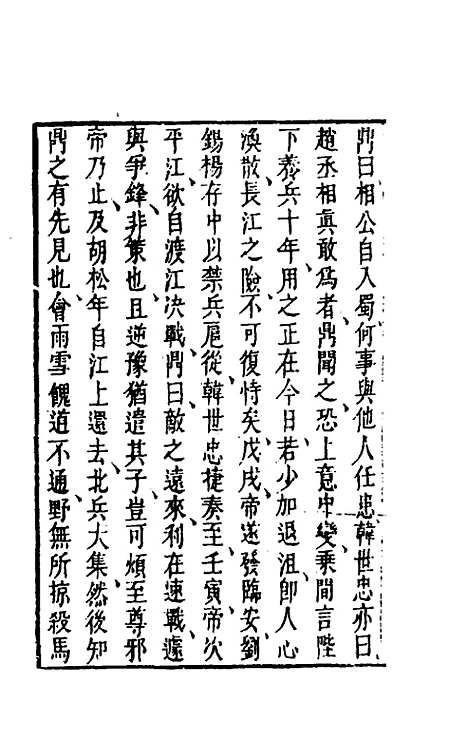 鼎曰相公自入蜀何事與他人任患韓世忠亦曰
趙丞相真敢爲者鼎聞之恐上意中變乘間言陛
下養兵十年用之正在今日若少加退沮即人心
渙散長江之險不可復恃矣戊戌帝遂發臨安劉
錫楊存中以禁兵扈從韓世忠捷奏至壬寅帝次
平江欲自渡江决戰鼎曰敵之遠來利在速戰遽
與爭鋒非策也且逆豫猶遣其子豈可煩至尊邪
帝乃止及胡松年自江上還去北兵大集然後知
鼎之有先見也會雨雪餽道不通野無所掠殺馬